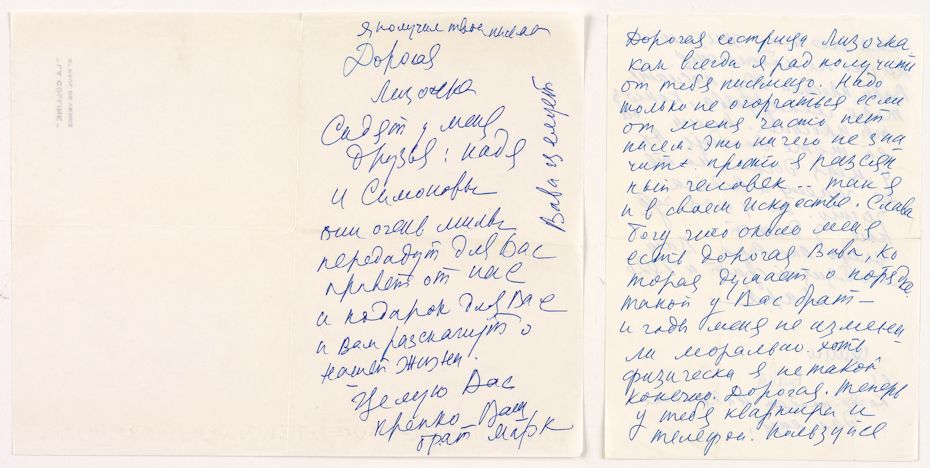 я получил твои письма
Дорогая
Лизочка
Сидят у меня
Друзья: надя
и Симоновы
они очень милы
передадут для Вас
привет от нас
и подарок для Вас
и Вам расскажут о
нашей жизни.
Целую Вас
крепко Ваш
брат Марк
Вава целует
"LA COLLINE"
Дорогая сестрица Лизочка.
как всегда я рад получить
от тебя письмецо. Надо
только не огорчаться если
от меня часто нет
писем. Это ничего не зна
чит. просто я рассеян
ный человек.. так я
и в своем искусстве. Слава
богу что около меня
есть Дорогая Вава, ко
торая думает о порядке.
такой у Вас брат —
и годы меня не измени
ли морально. хоть
физически я не такой
конечно. Дорогая. теперь
у тебя квартира и
телефон. Пользуйся